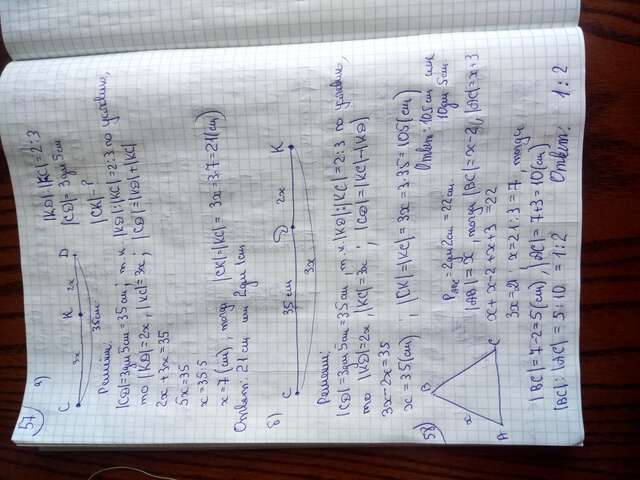 57 а) |KD|:|KC|=2:3
|CD|=3дм 5см
|CK|-?
C 3x K 2x D
35см
Решение:
|CD|=3дм 5см=35см, т.к. |KD|:|KC|=2:3 по условию,
то |KD|=2x, |KC|=3x; |CD|=|KD|+|KC|
2x+3x=35
5x=35
x=35:5
x=7(см), тогда |CK|=|KC|=3x=3·7=21(см)
Ответ: 21см или 2дм 1см
б)
C 35см D 2x K
3x
Решение:
|CD|=3дм 5см=35см, т.к. |KD|:|KC|=2:3 по условию,
то |KD|=2x, |KC|=3x; |CD|=|KC|-|KD|
3x-2x=35
x=35(см), |CK|=|KC|=3x=3·35=105(см)
Ответ: 105см или
10дм 5см
58 P ABC=2дм 2см=22см
|AB|=x, тогда |BC|=x-2, |AC|=x+3
x+x-2+x+3=22
3x=21; x=21:3=7. тогда
B
x
A
C
|BC|=7-2=5(см), |AC|=7+3=10(см)
|BC|:|AC|=5:10=1:2 Ответ: 1:2